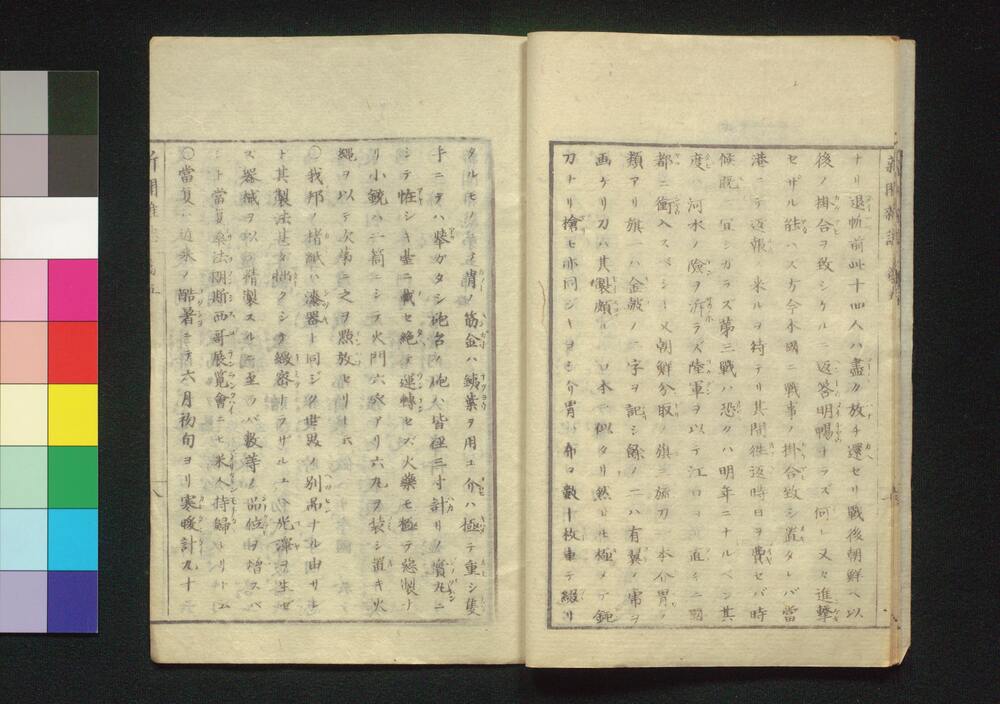 ナリ退斬前此十四人ハ盡ク放チ還セリ戰後朝鮮ヘ以
後ノ掛合ヲ致シケルニ返答明暢ナラズ何レ又々進撃
セザル能ハズ今本國ニ戰事ノ掛合致シ置タレバ當
港ニテ返報ノ来ルヲ待テリ其間往返時日ヲ費セバ時
候既ニ宜シカラズ第三戰ハ恐クハ明年ニナルベシ其
度ハ河水ノ險ヲ泝ラズ陸軍ヲ以テ江口ヨリ直チニ國
都ニ衝入スベシト又朝鮮分取ノ旗三旒刀一本介冑ノ
類アリ旗一ハ金皷ノ二字ヲ記シ餘ノ二ハ有翼ノ虎ヲ
画ケリ刀ハ其製頗ル日本ニ似タリ然レ𪜈極メテ鈍
刀ナリ槍モ亦同ジキヨシ介冑ハ布コ數十枚重テ綴リ
タルモノニテ冑ノ筋金ハ鋳葉ヲ用ユ介ハ極テ重シ隻
手ニテハ擧ガタシ砲台ノ砲ハ皆徑三寸計リノ實丸ニ
シテ怪シキ臺ニ載セ絶テ運轉セズ火藥モ極テ惡製ナ
リ小銃ハ二筒ニシテ火門六穴アリ六丸ヲ装シ置キ火
縄ヲ以テ次第ニ之ヲ點放セリト云
〇我邦ノ楮紙ハ漆器ト同ジク世界ノ別品ナル由サレ
ト其製法甚タ拙クシテ緻密ナラザルユヘ光澤ヲ生ゼ
ズ器械ヲ以テ精製スルニ至ラバ數等ノ品位ヲ増スベ
シト當夏桑法朗斯西哥展覧會ニモ米人持歸レリト云
〇當夏ハ近来ノ酷暑ニテ六月初旬ヨリ寒暖計九十
新聞雜